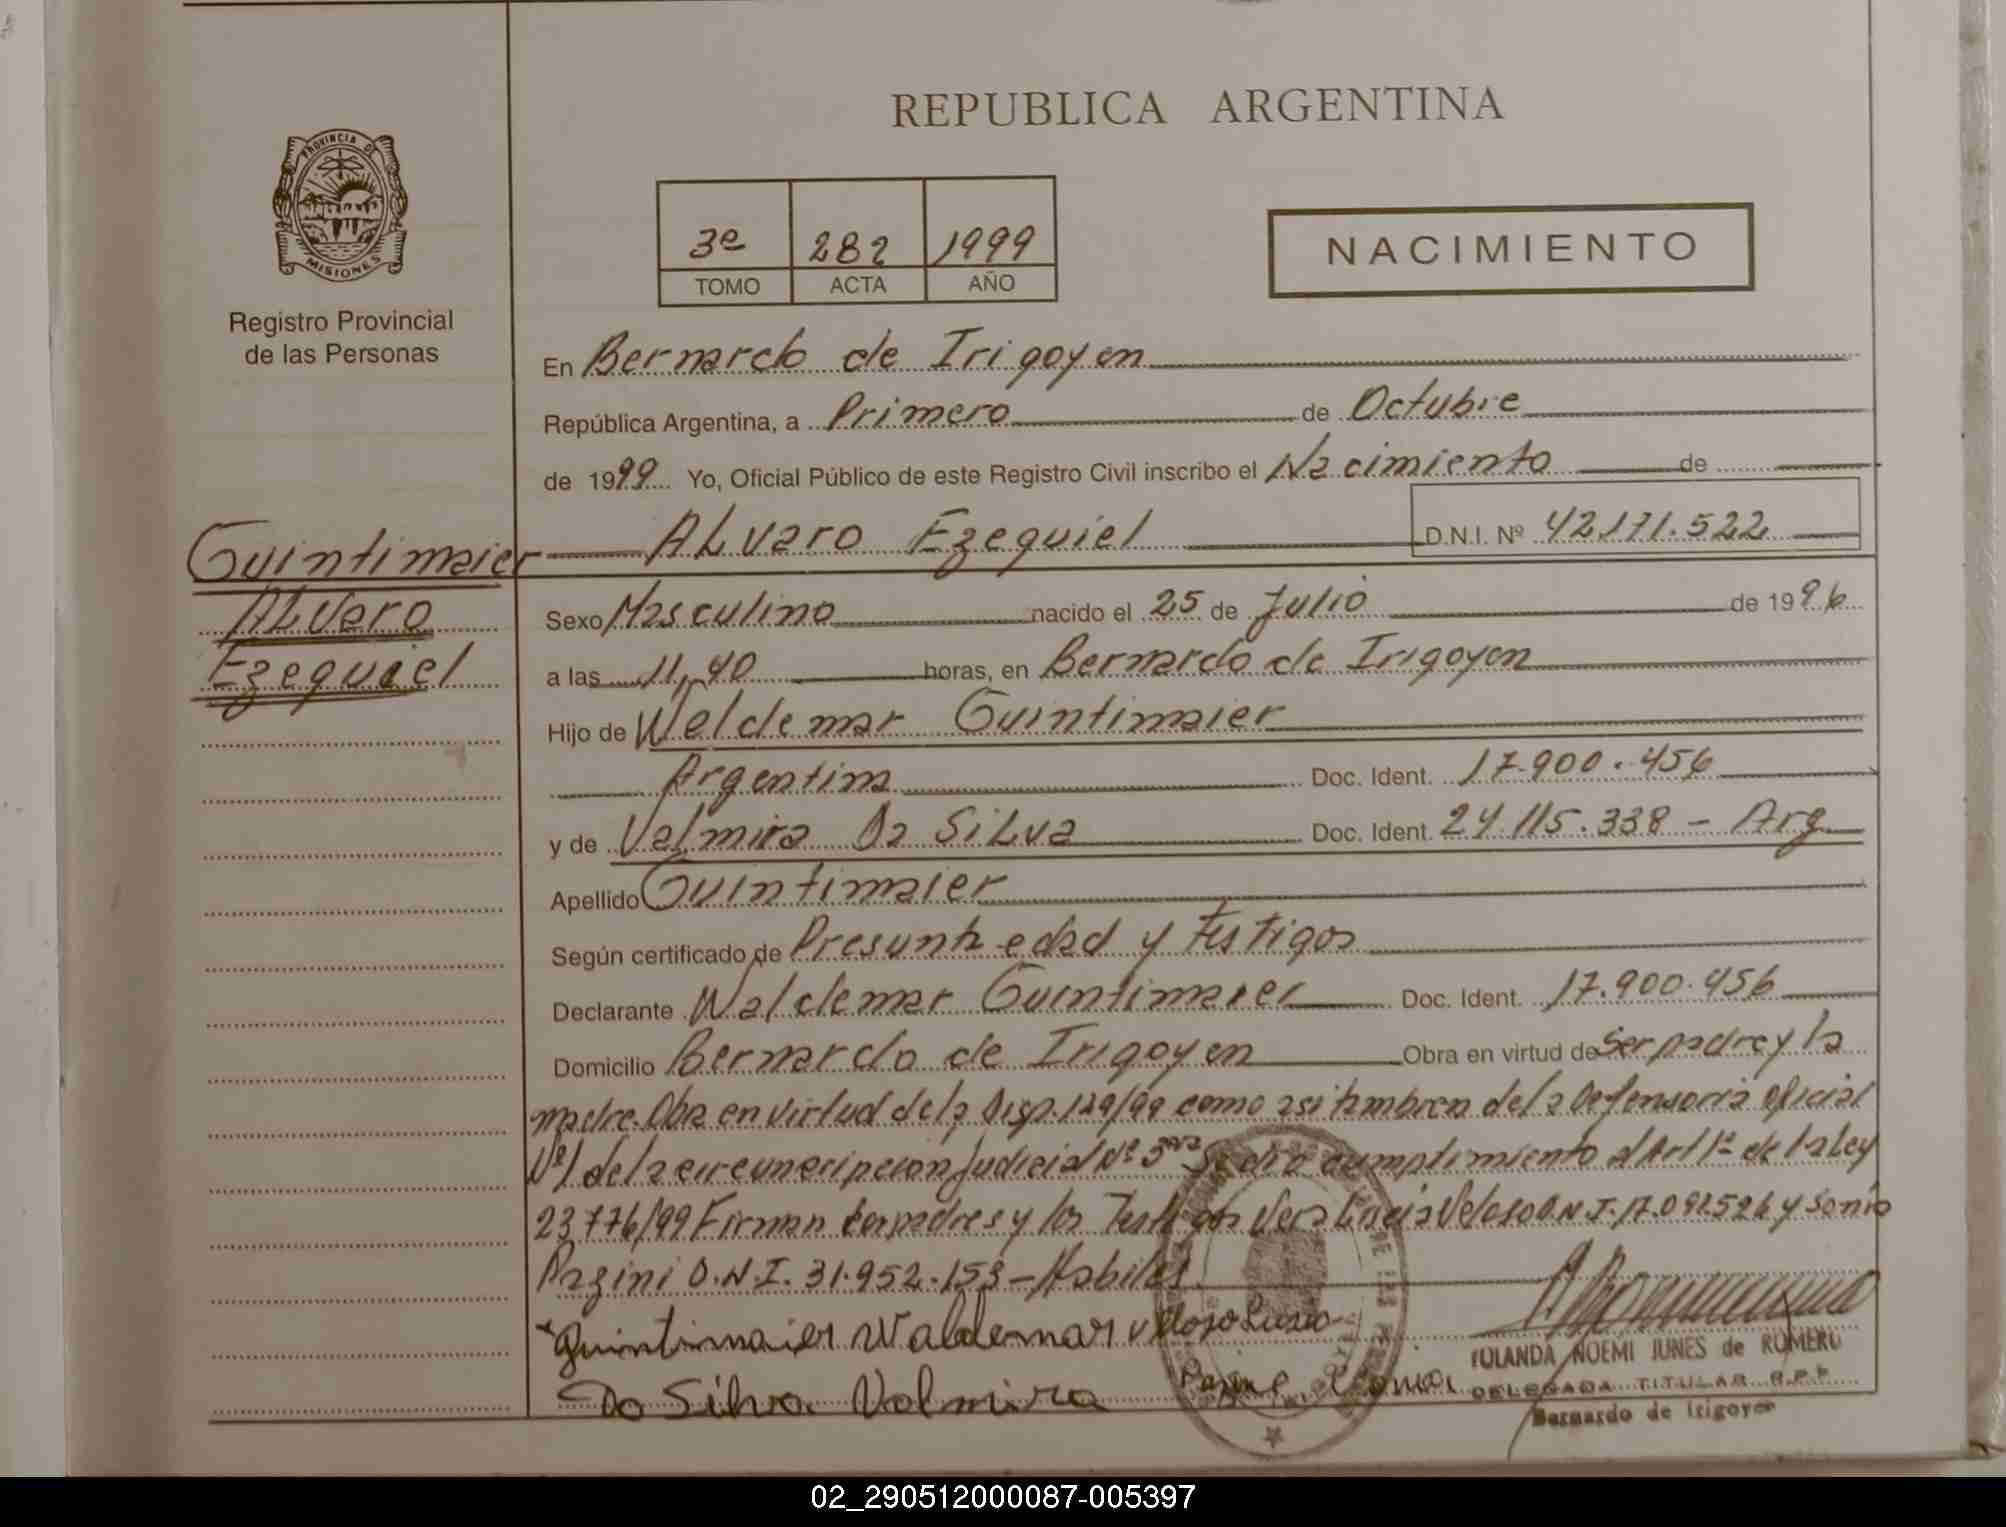 REPUBLICA ARGENTINA
PROVINCIA DE
MISIONES
Registro Provincial
de las Personas
3e 282 1999
TOMO ACTA AÑO
NACIMIENTO
En Bernardo de Irigoyen
República Argentina, a Primero de Octubre
de 1999 Yo, Oficial Público de este Registro Civil inscribo el Nacimiento de
Guintimaier
Alvaro
Ezequiel
ALvaro Ezequiel D.N.I. Nº 42.171.522
Sexo Masculino nacido el 25 de Julio de 1996
a las 11,40 horas, en Bernardo de Irigoyen
Hijo de Weldemar Guintimaier
Argentina Doc. Ident. 17.900.456
y de Valmira Da Silva Doc. Ident. 24.115.338 - Arg
Apellido Guintimaier
Según certificado de Presunta edad y testigos
Declarante Waldemar Guintimaier Doc. Ident. 17.900.456
Domicilio Bernardo de Irigoyen Obra en virtud de Ser padre y la
madre. Obra en virtud de la Disp. 129/99 como asi tambien de la Defensoria Oficial
Nº1 de la circunscripcion Judicial Nº 3ra Se dio cumplimiento al Art 1º de la Ley
23776/99 Firman los padres y los Testigos Vera Lucia Veloso D.N.I. 17.091.526 y Sonia
Pazini D.N.I. 31.952.153 - Habiles
Guintimaier Waldemar Veloso
Da Silva Valmira
YOLANDA NOEMI JUNES de ROMERO
DELEGADA TITULAR R.P.P.
Bernardo de Irigoyen
02_290512000087-005397